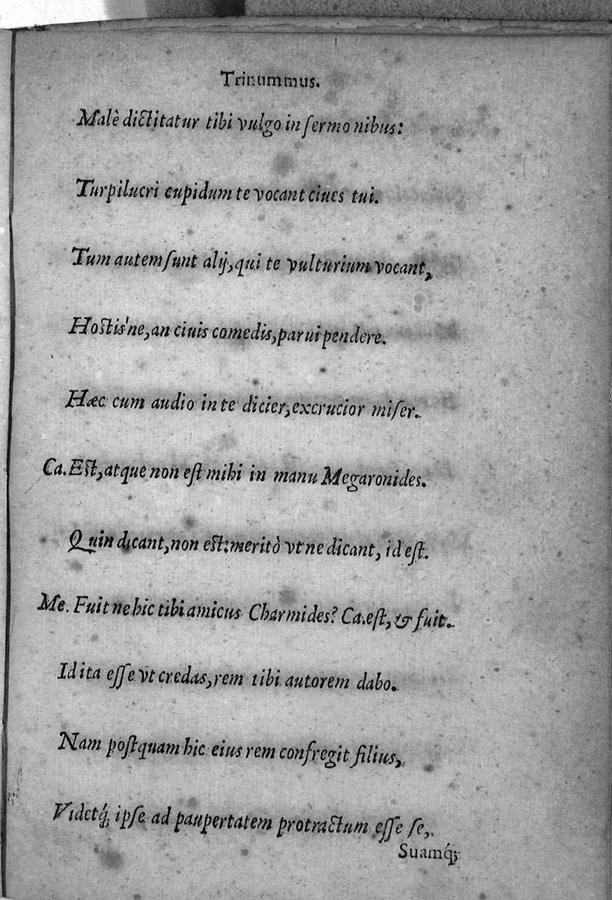 Trinummus.
Malè dictitatur tibi vulgo in sermonibus:
Turpilucri cupidum te vocant ciues tui.
Tum autem sunt alij, qui te vulturium vocant,
Hostis'ne, an ciuis comedis, parui pendere.
Hæc cum audio in te dicier, excrucior miser.
Ca. Est, atque non est mihi in manu Megaronides.
Quin dicant, non est: meritò vt ne dicant, id est.
Me. Fuit ne hic tibi amicus Charmides? Ca. est, & fuit.
Id ita esse vt credas, rem tibi autorem dabo.
Nam postquam hic eius rem confregit filius,
Videtq́; ipse ad paupertatem protractum esse se,
Suamq́;